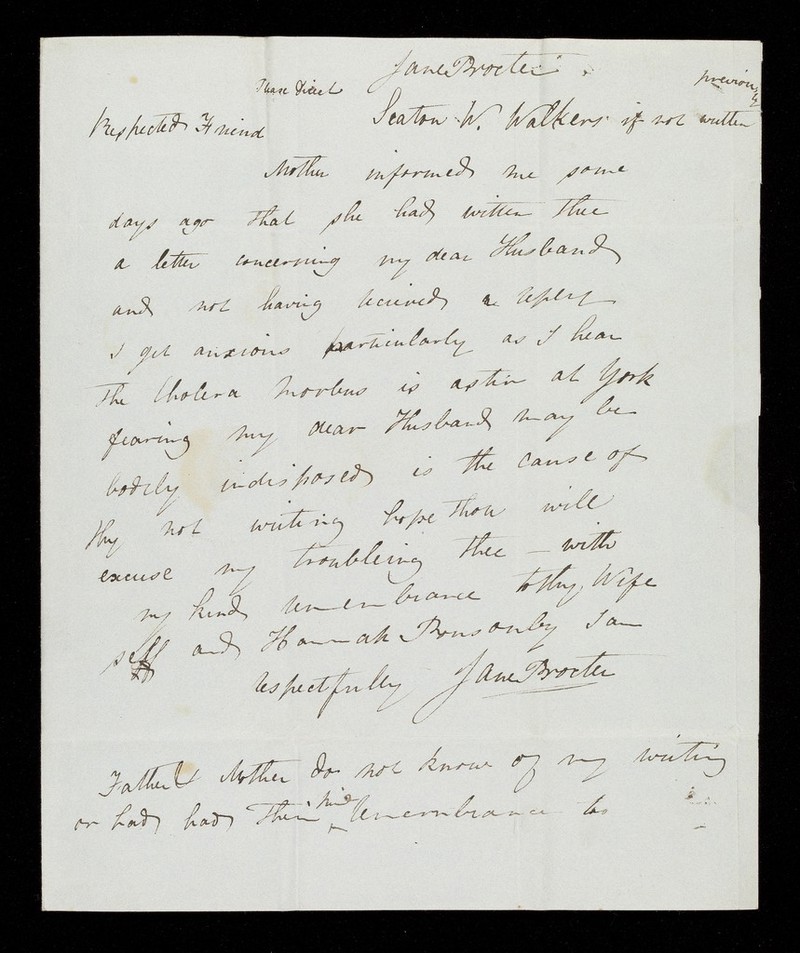 Jane Procter
Please Direct
previously
Respected Friend Seaton W. Walkers if not written
Mother informed me some
days ago that she had written thee
a letter concerning my dear Husband
and not having recieved a reply
I get anxious particularly as I hear
the Cholera Morbus is astir at York
fearing my dear Husband may be
bodily indisposed is the cause of
thy not writing hope thou will
excuse my troubleing thee – with
my kind remembrance to thy Wife
self and Hannah Ponsonby I am
respectfully Jane Procter
Father & Mother do not know of my writing
or had had their kind Remembrance to